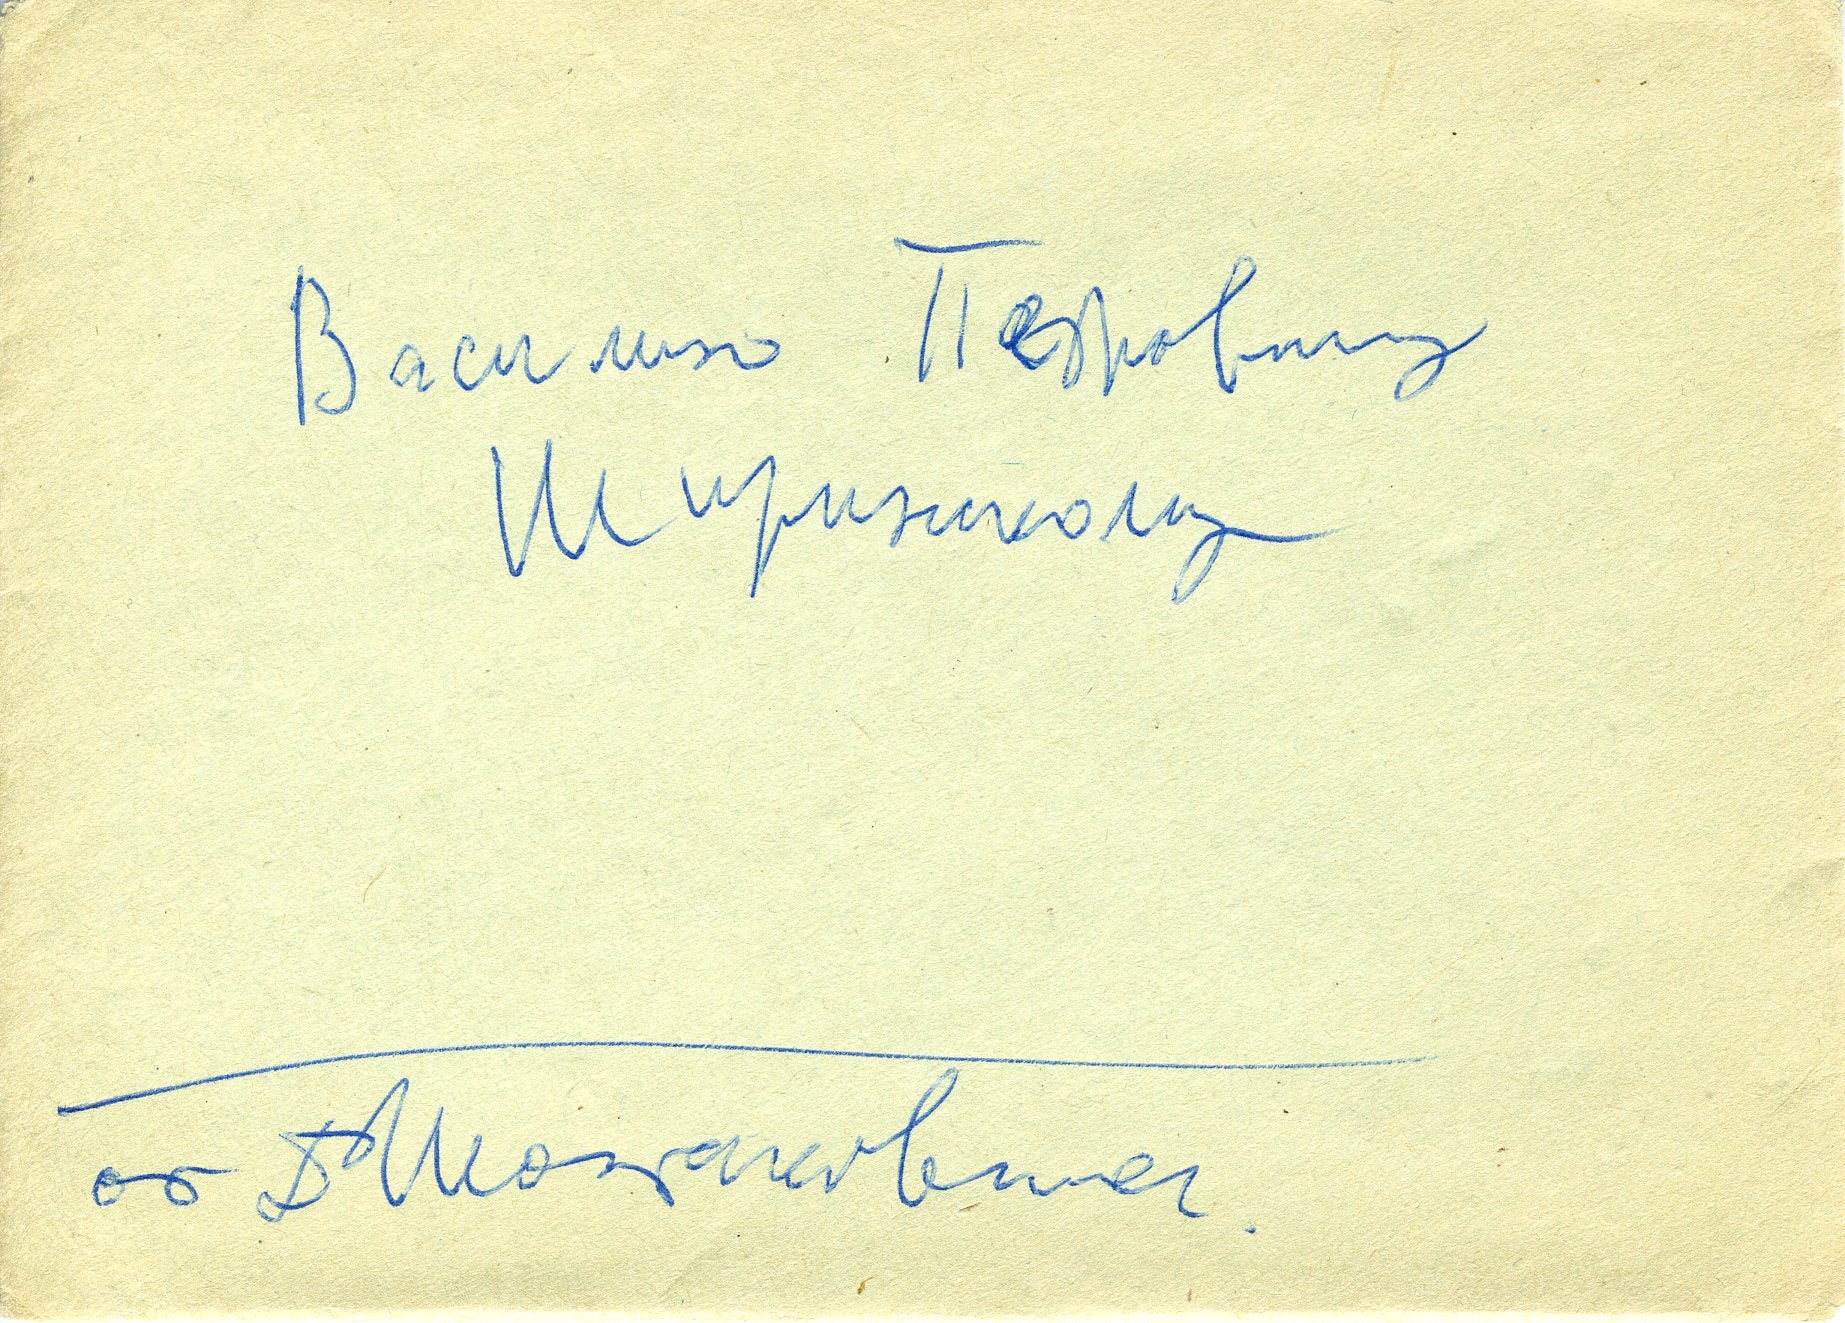 Василию Петровичу
Ширинскому
от ДШостаковича.